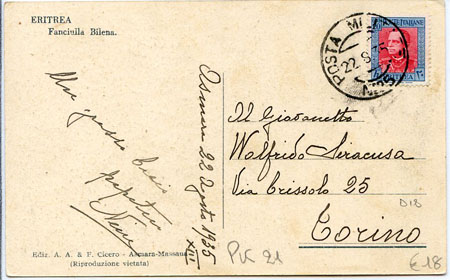 ERITREA
Fanciulla Bilena.
POSTA MI
22.8.35
POSTE ITALIANE
ERITREA
Asmara 22 Agosto 1935
XIII
Un grosso bacio
Al Giovanetto
Wolfrido Siracusa
Via Crissolo 25
Torino
Ediz. A. A. & F. Cicero - Asmara-Massaua
(Riproduzione vietata)
PK 21
D18
€ 18